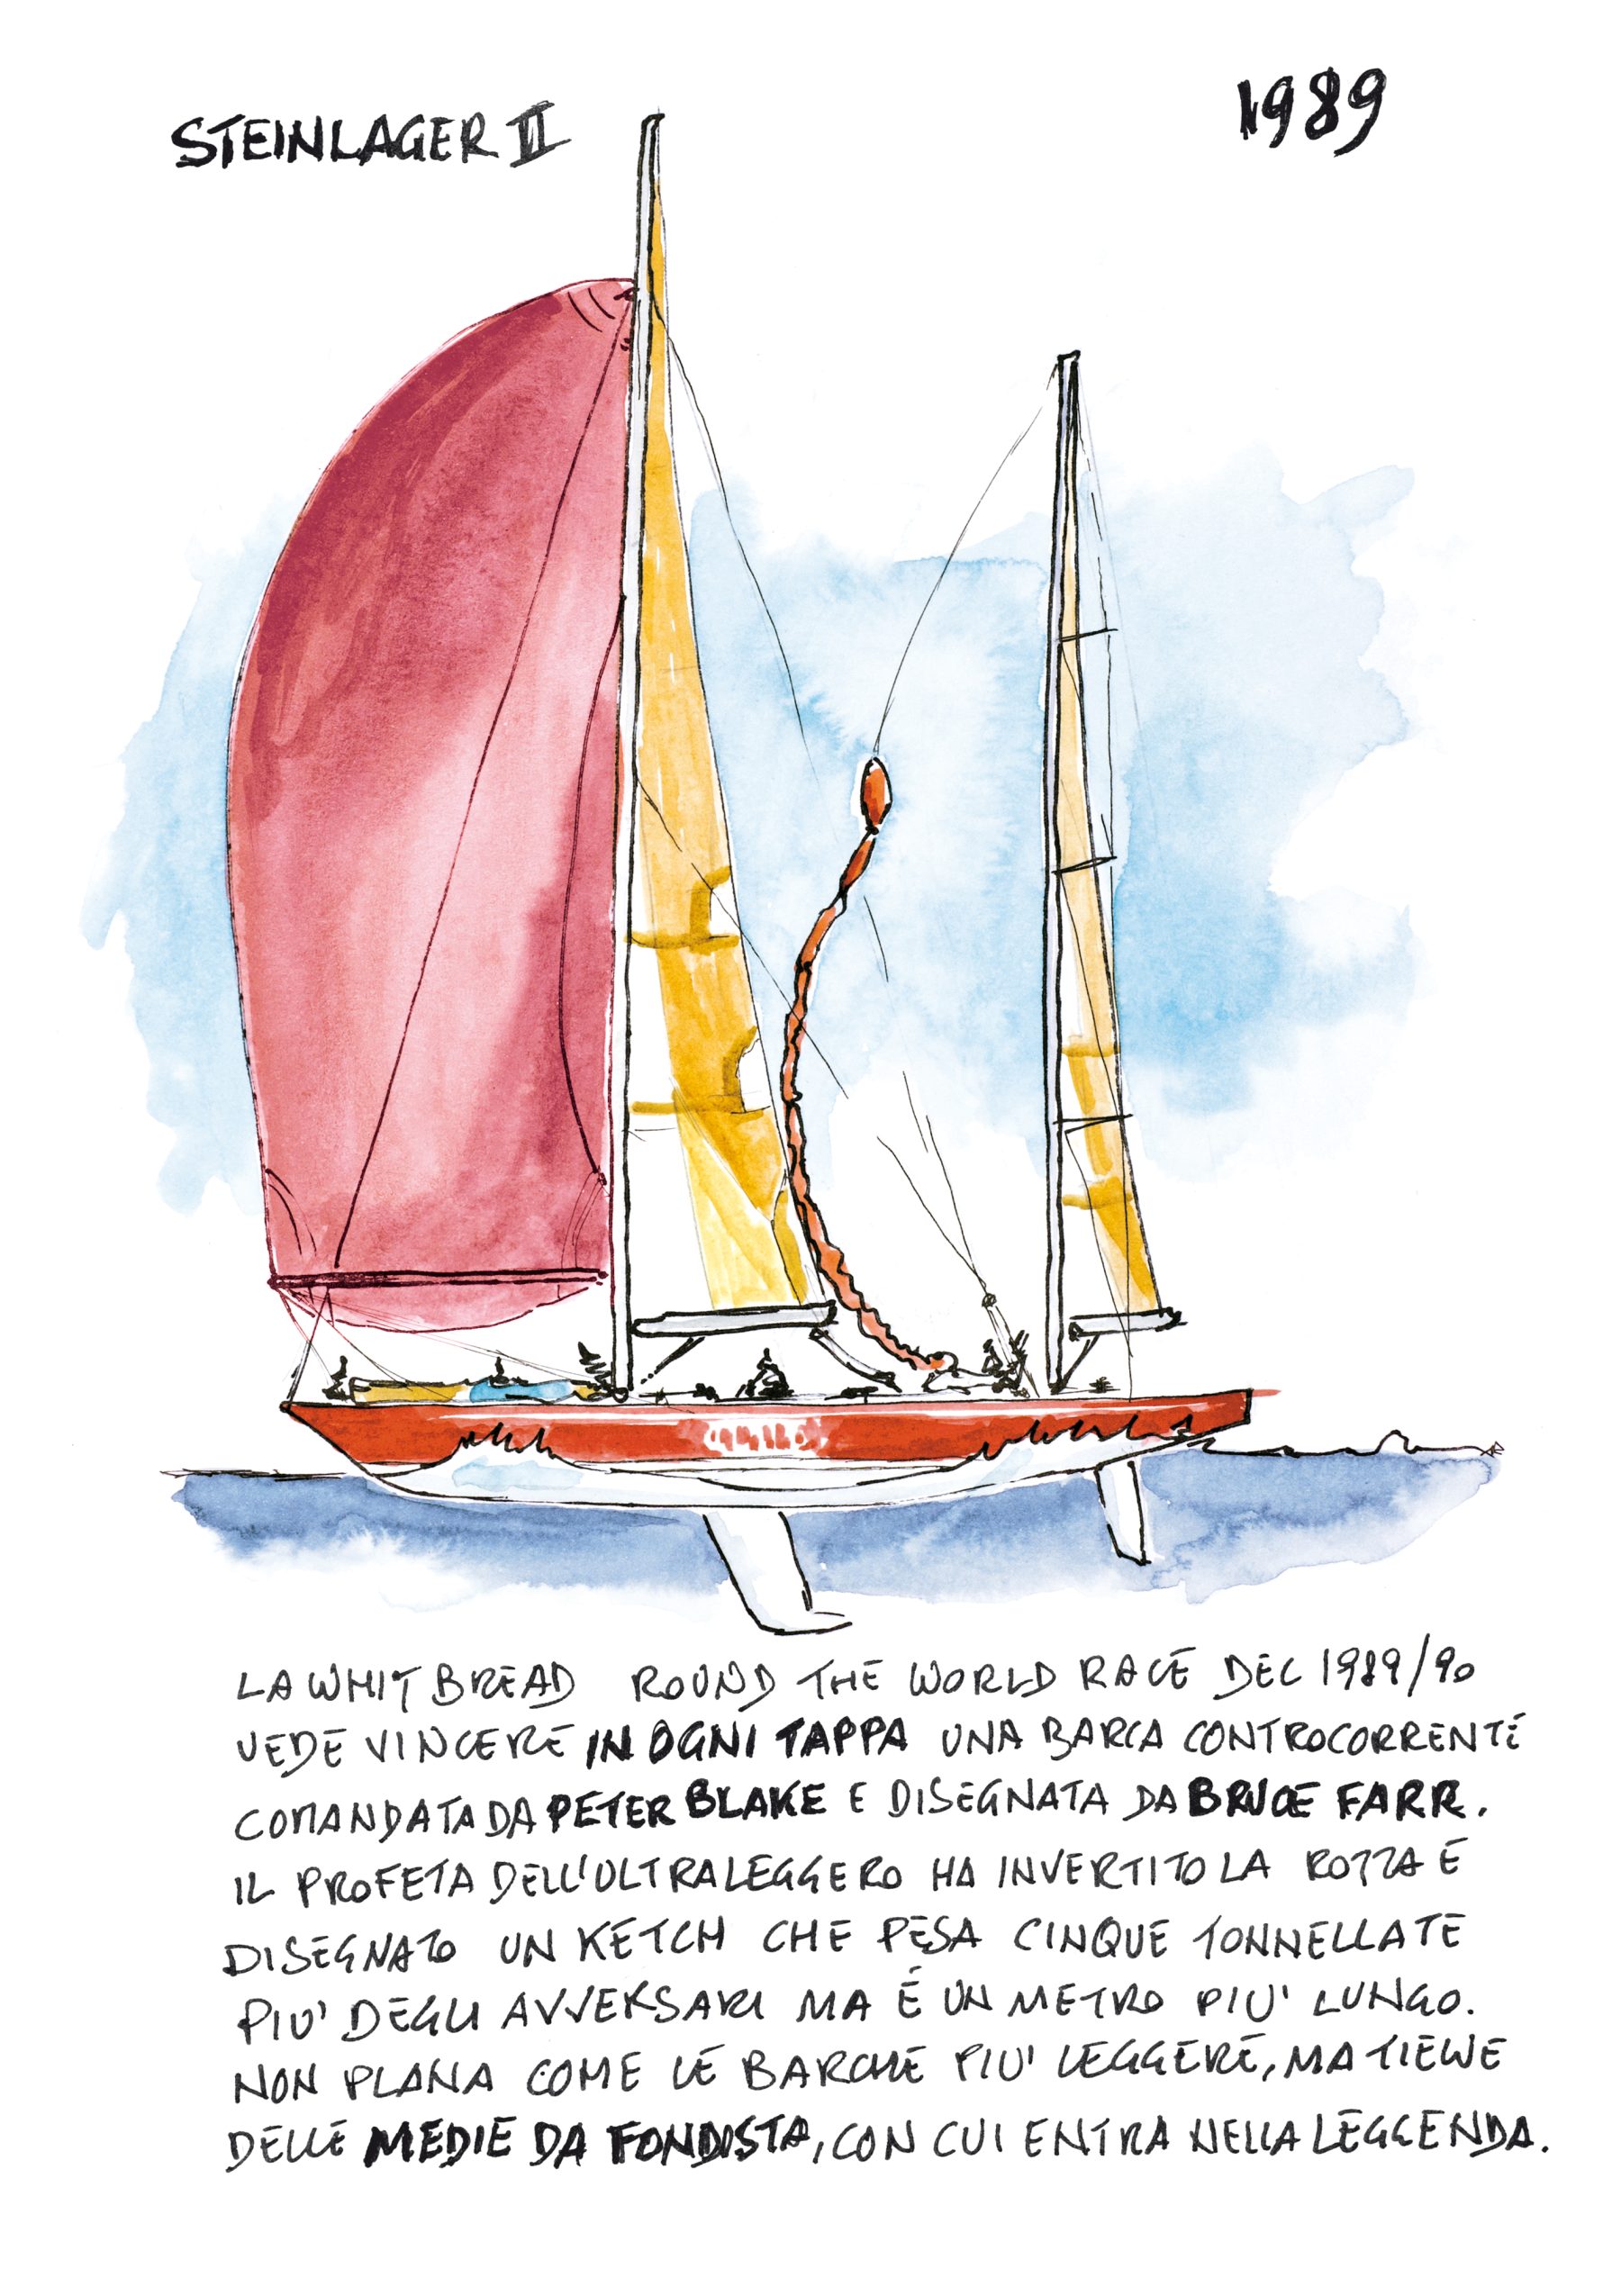 STEINLAGER II
1989
LA WHITBREAD ROUND THE WORLD RACE DEL 1989/90
VEDE VINCERE IN OGNI TAPPA UNA BARCA CONTROCORRENTE
COMANDATA DA PETER BLAKE E DISEGNATA DA BRUCE FARR.
IL PROFETA DELL'ULTRALEGGERO HA INVERTITO LA ROTTA E
DISEGNATO UN KETCH CHE PESA CINQUE TONNELLATE
PIU' DEGLI AVVERSARI MA É UN METRO PIU' LUNGO.
NON PLANA COME LE BARCHE PIU' LEGGERE, MA TIENE
DELLE MEDIE DA FONDISTA, CON CUI ENTRA NELLA LEGGENDA.